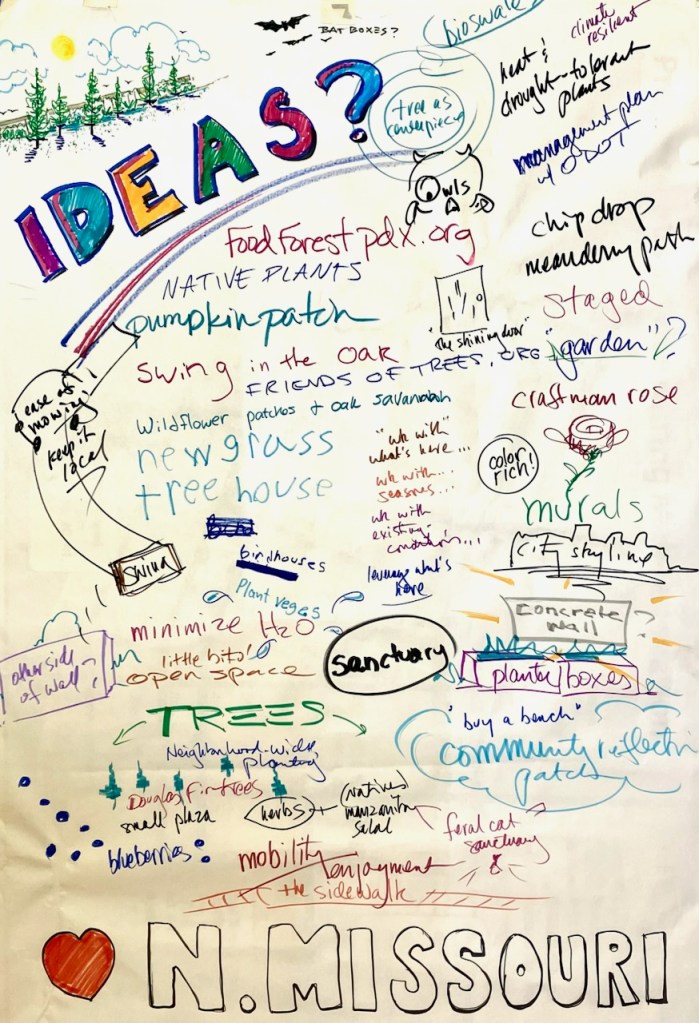 BAT BOXES?
bioswale
climate
resilient
IDEAS?
heat &
drought-tolerant
plants
tree as
centerpiece
management plan
w/ ODOT
Owls
chip drop
meandering path
FoodForestpdx.org
NATIVE PLANTS
pumpkin patch
staged
"garden"?
swing in the OAK
FRIENDS OF TREES.ORG
Wildflower patches & oak savannah
craftman rose
ease of
mowing!
keep it
local
new grass
tree house
"wk with"
what's here...
wk with...
seasons...
wk with
existing
conditions...
leverage what's
here
color
rich!
murals
city skyline
swing
birdhouses
Plant veges
minimize H2O
little bits!
open space
sanctuary
concrete
wall
planter boxes
other side
of wall?
TREES
Neighborhood-wide
planting
"buy a bench"
community reflectn
patch
Douglas fir trees
small plaza
herbs
(natives)
manzanita
salal
feral cat
sanctuary
blueberries
mobility
enjoyment
the sidewalk
N.MISSOURI